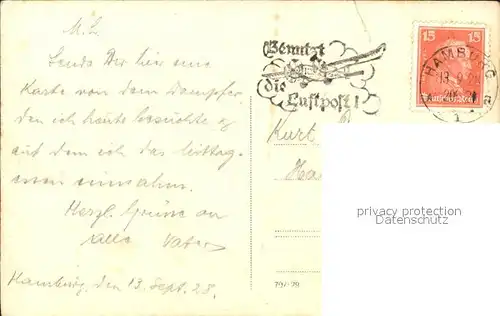 M. L.
Sende Dir hier eine
Karte von dem Dampfer,
den ich heute besuchte &
auf dem ich das Mittag-
essen einnahm.
Herzl. Grüsse an
alle Vater
Hamburg, den 13. Sept. 28.
Benutzt
die
Luftpost!
15 15
HAMBURG
13.9.28
1
Kurt
Ha
privacy protection
Datenschutz
70/129